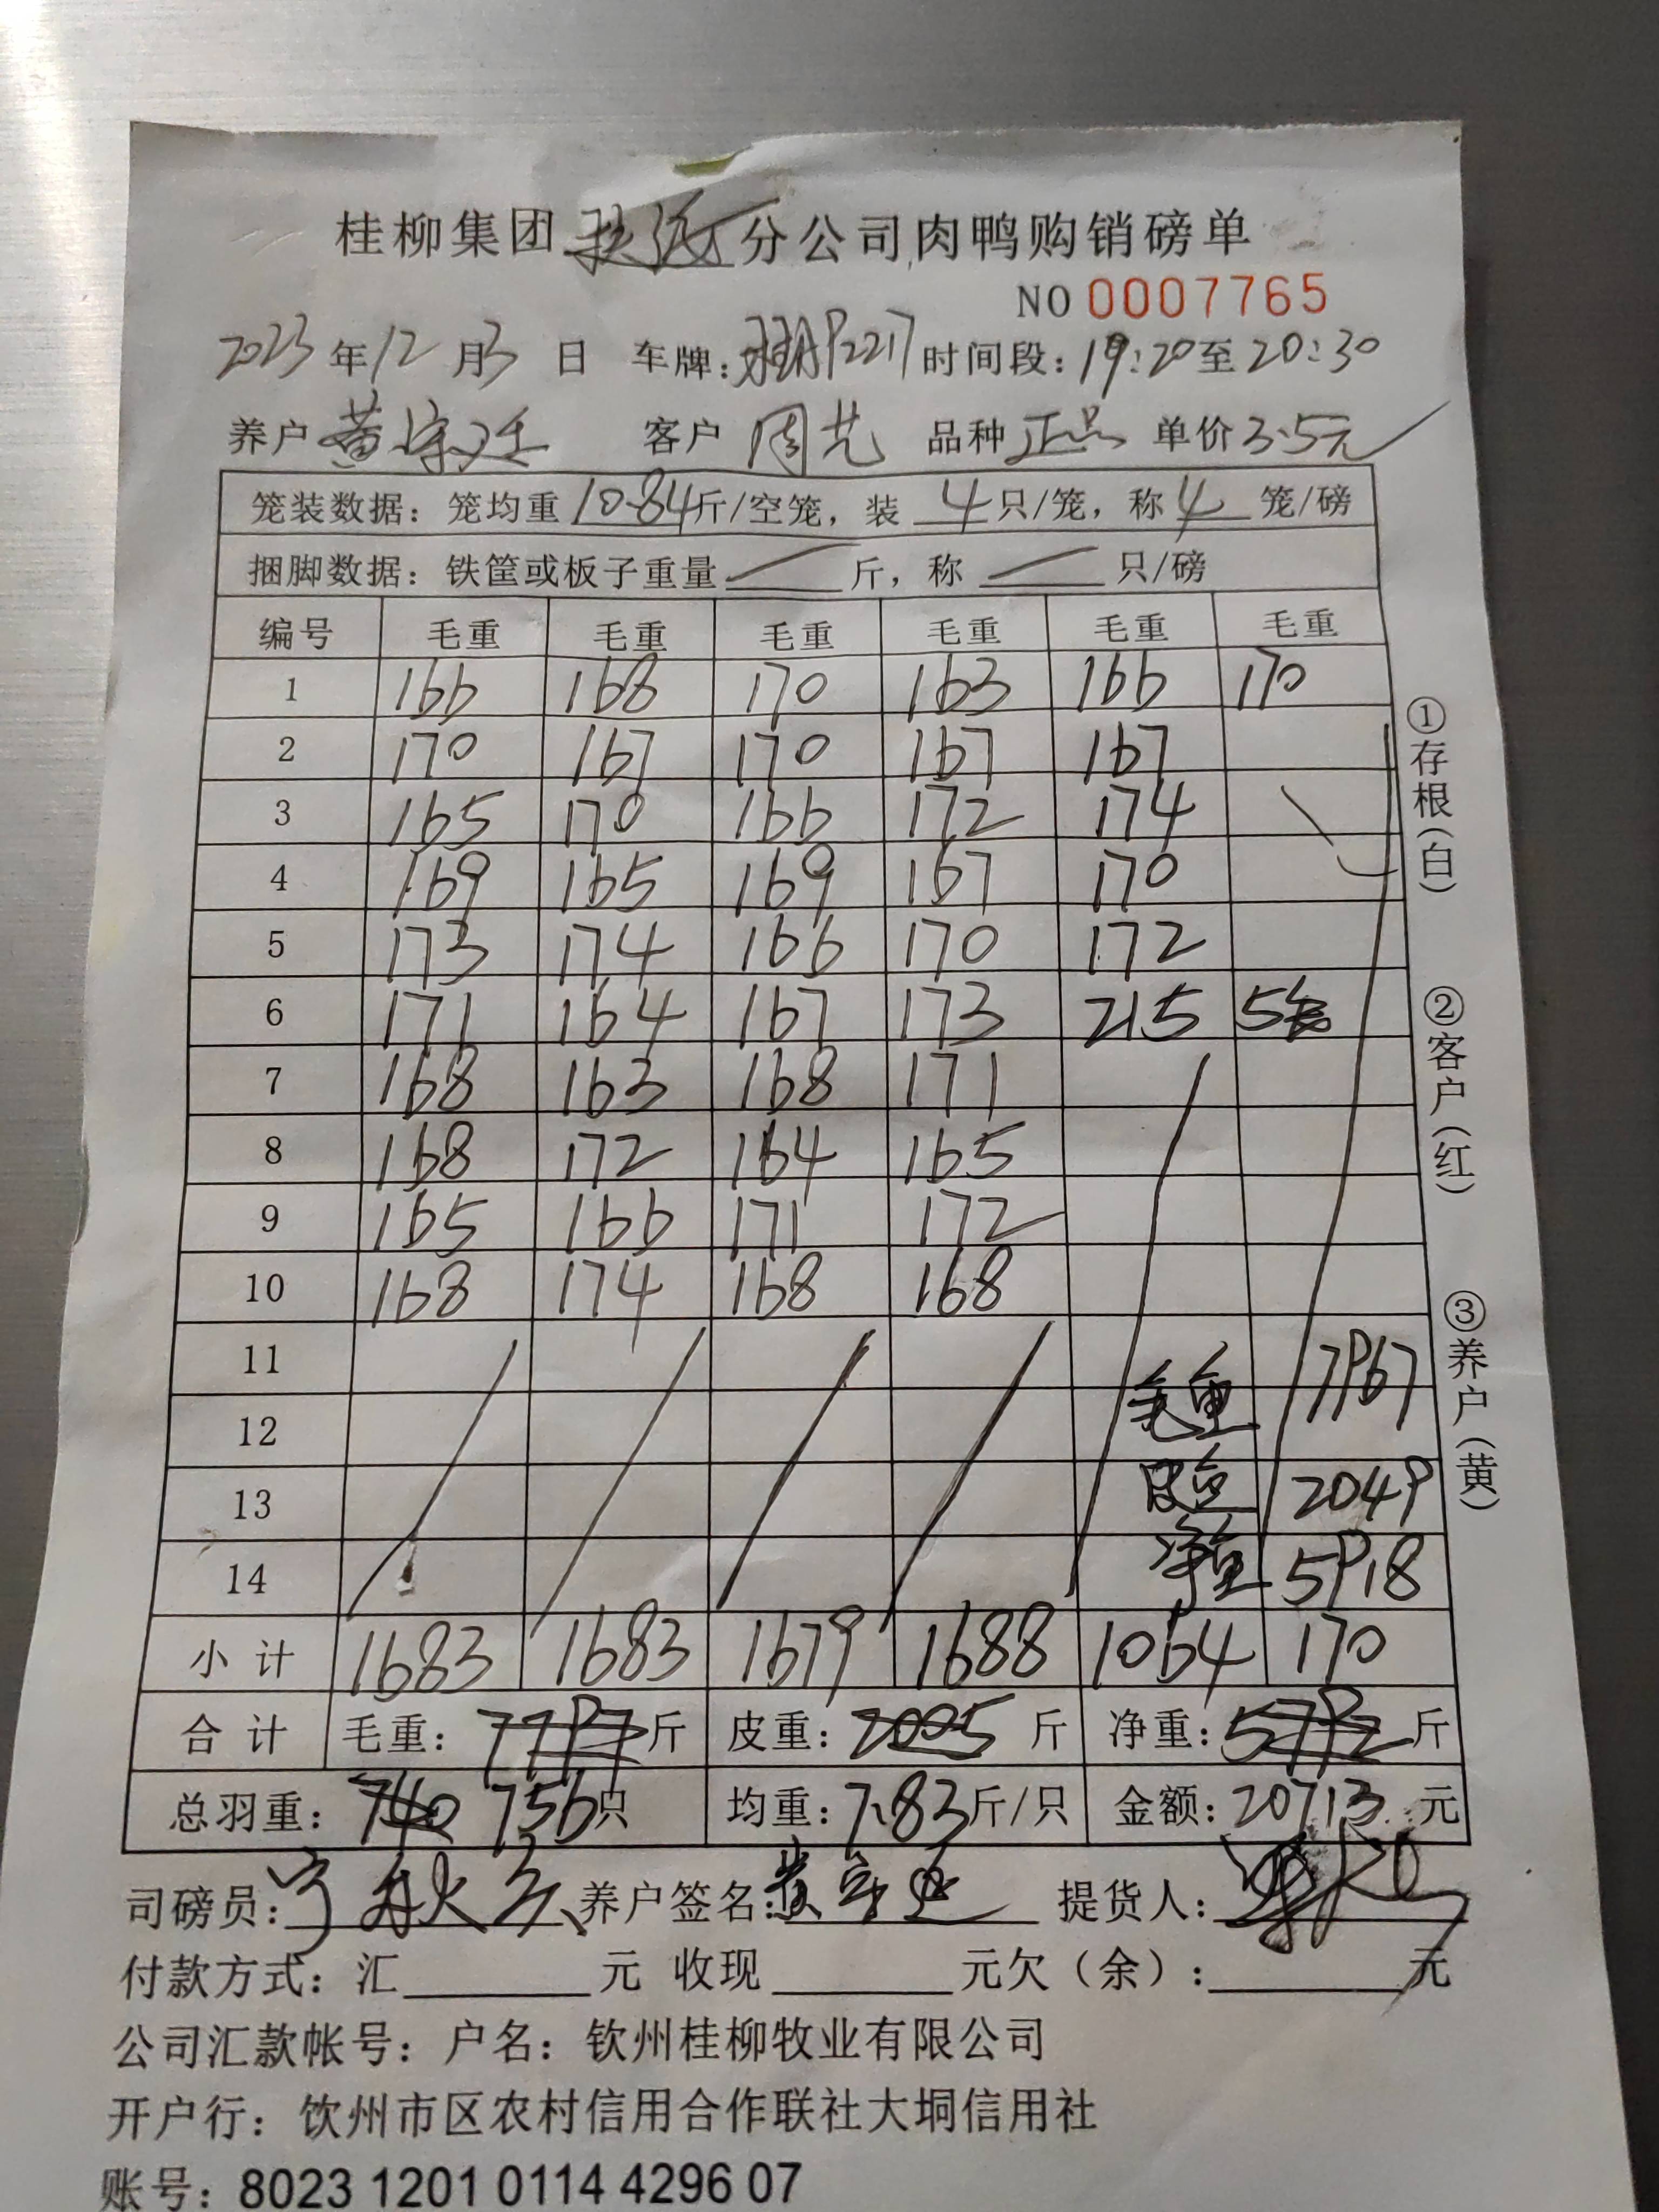 桂柳集团 分公司肉鸭购销磅单
NO 0007765
2023年12月3日 车牌: P2217 时间段:19:20至20:30
养户 黄 廷 客户 周艺 品种 正品 单价 3.5元
笼装数据:笼均重 10.84斤/空笼,装 4只/笼,称 4 笼/磅
捆脚数据:铁筐或板子重量 斤,称 只/磅
编号 毛重 毛重 毛重 毛重 毛重 毛重
1 166 168 170 163 166 170
2 170 167 170 167 167
3 165 170 166 172 174
4 169 165 169 167 170
5 173 174 166 170 172
6 171 164 167 173 215 5
7 168 163 168 171
8 168 172 164 165
9 165 166 171 172
10 168 174 168 168
11 7967
12 毛重
13 皮重 2049
14 净重 5918
小计 1683 1683 1679 1688 1064 170
合计 毛重:7797斤 皮重:2005斤 净重:5792斤
总羽重:740 756只 均重:7.83斤/只 金额:20713元
司磅员: 养户签名:黄 廷 提货人:
付款方式:汇 元 收现 元欠(余): 元
公司汇款帐号:户名:钦州桂柳牧业有限公司
开户行:饮州市区农村信用合作联社大垌信用社
账号:8023 1201 0114 4296 07
①存根(白)
②客户(红)
③养户(黄)